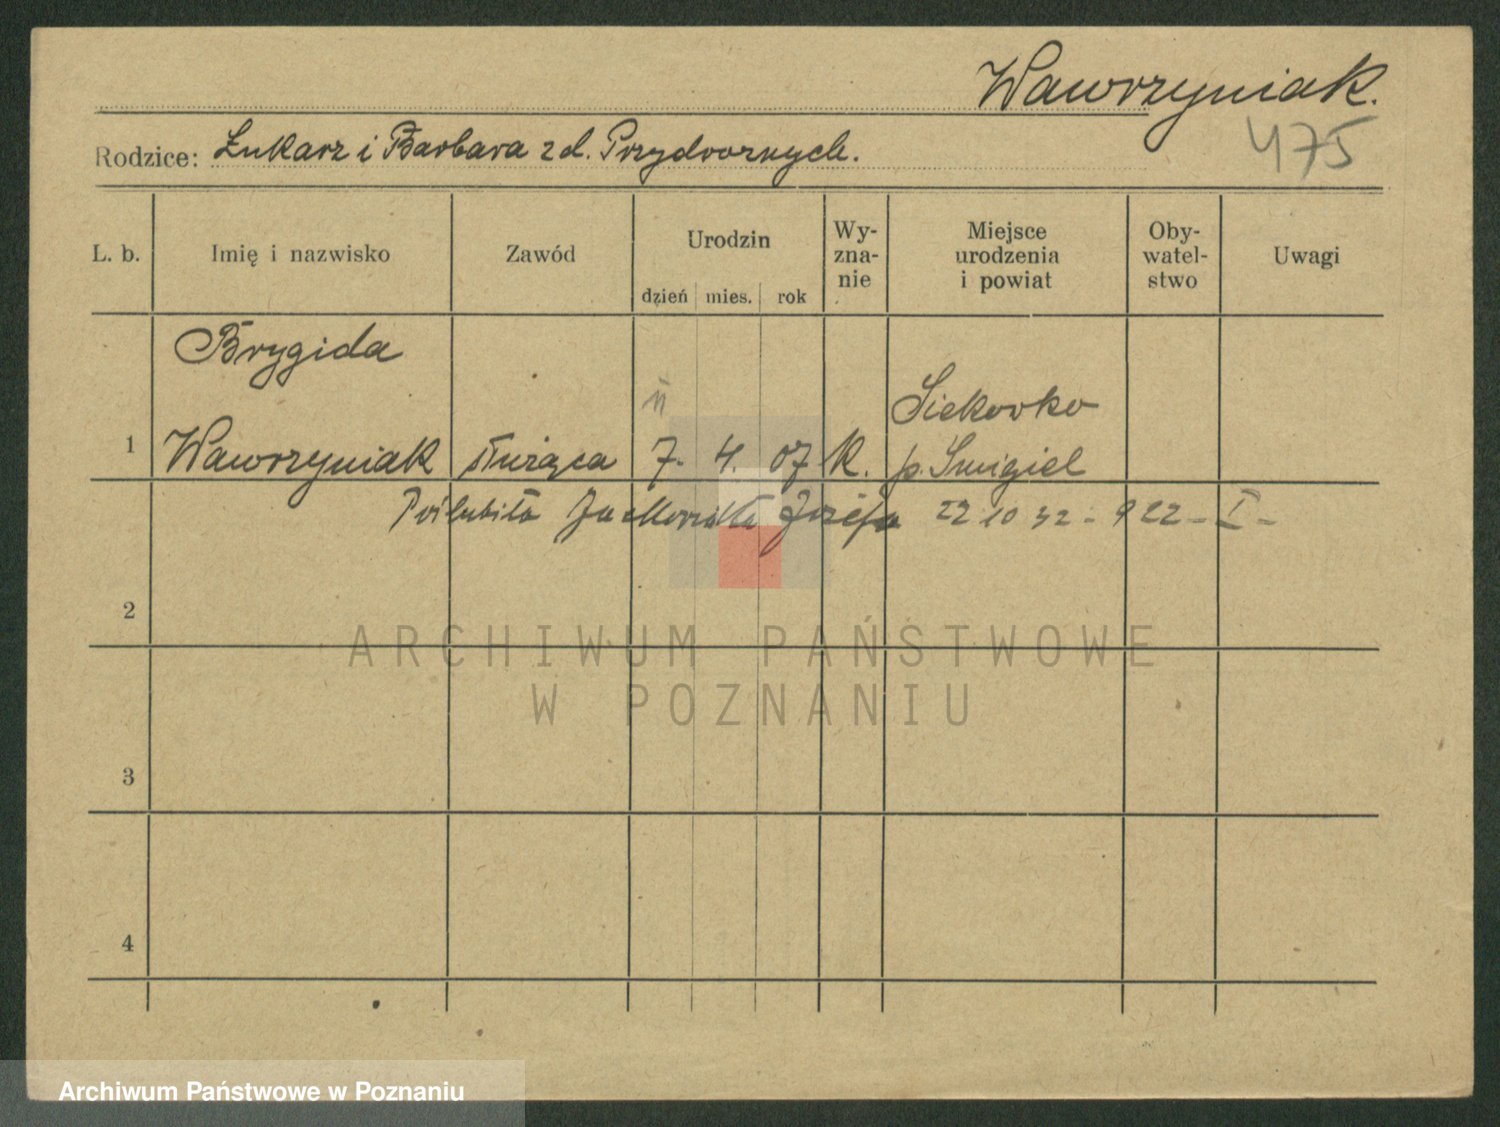 Wawrzyniak.
475
Rodzice: Łukarz i Barbara z d. Przydworznych.
L. b. Imię i nazwisko Zawód Urodzin dzień mies. rok Wy-zna-nie Miejsce urodzenia i powiat Oby-watel-stwo Uwagi
Brygida
Siekowko
1 Wawrzyniak służąca 7. 4. 07 k. p. Śmigiel
Poślubiła Józefa 22 10 32 - 922 - I -
2
ARCHIWUM PAŃSTWOWE
W POZNANIU
3
4
Archiwum Państwowe w Poznaniu